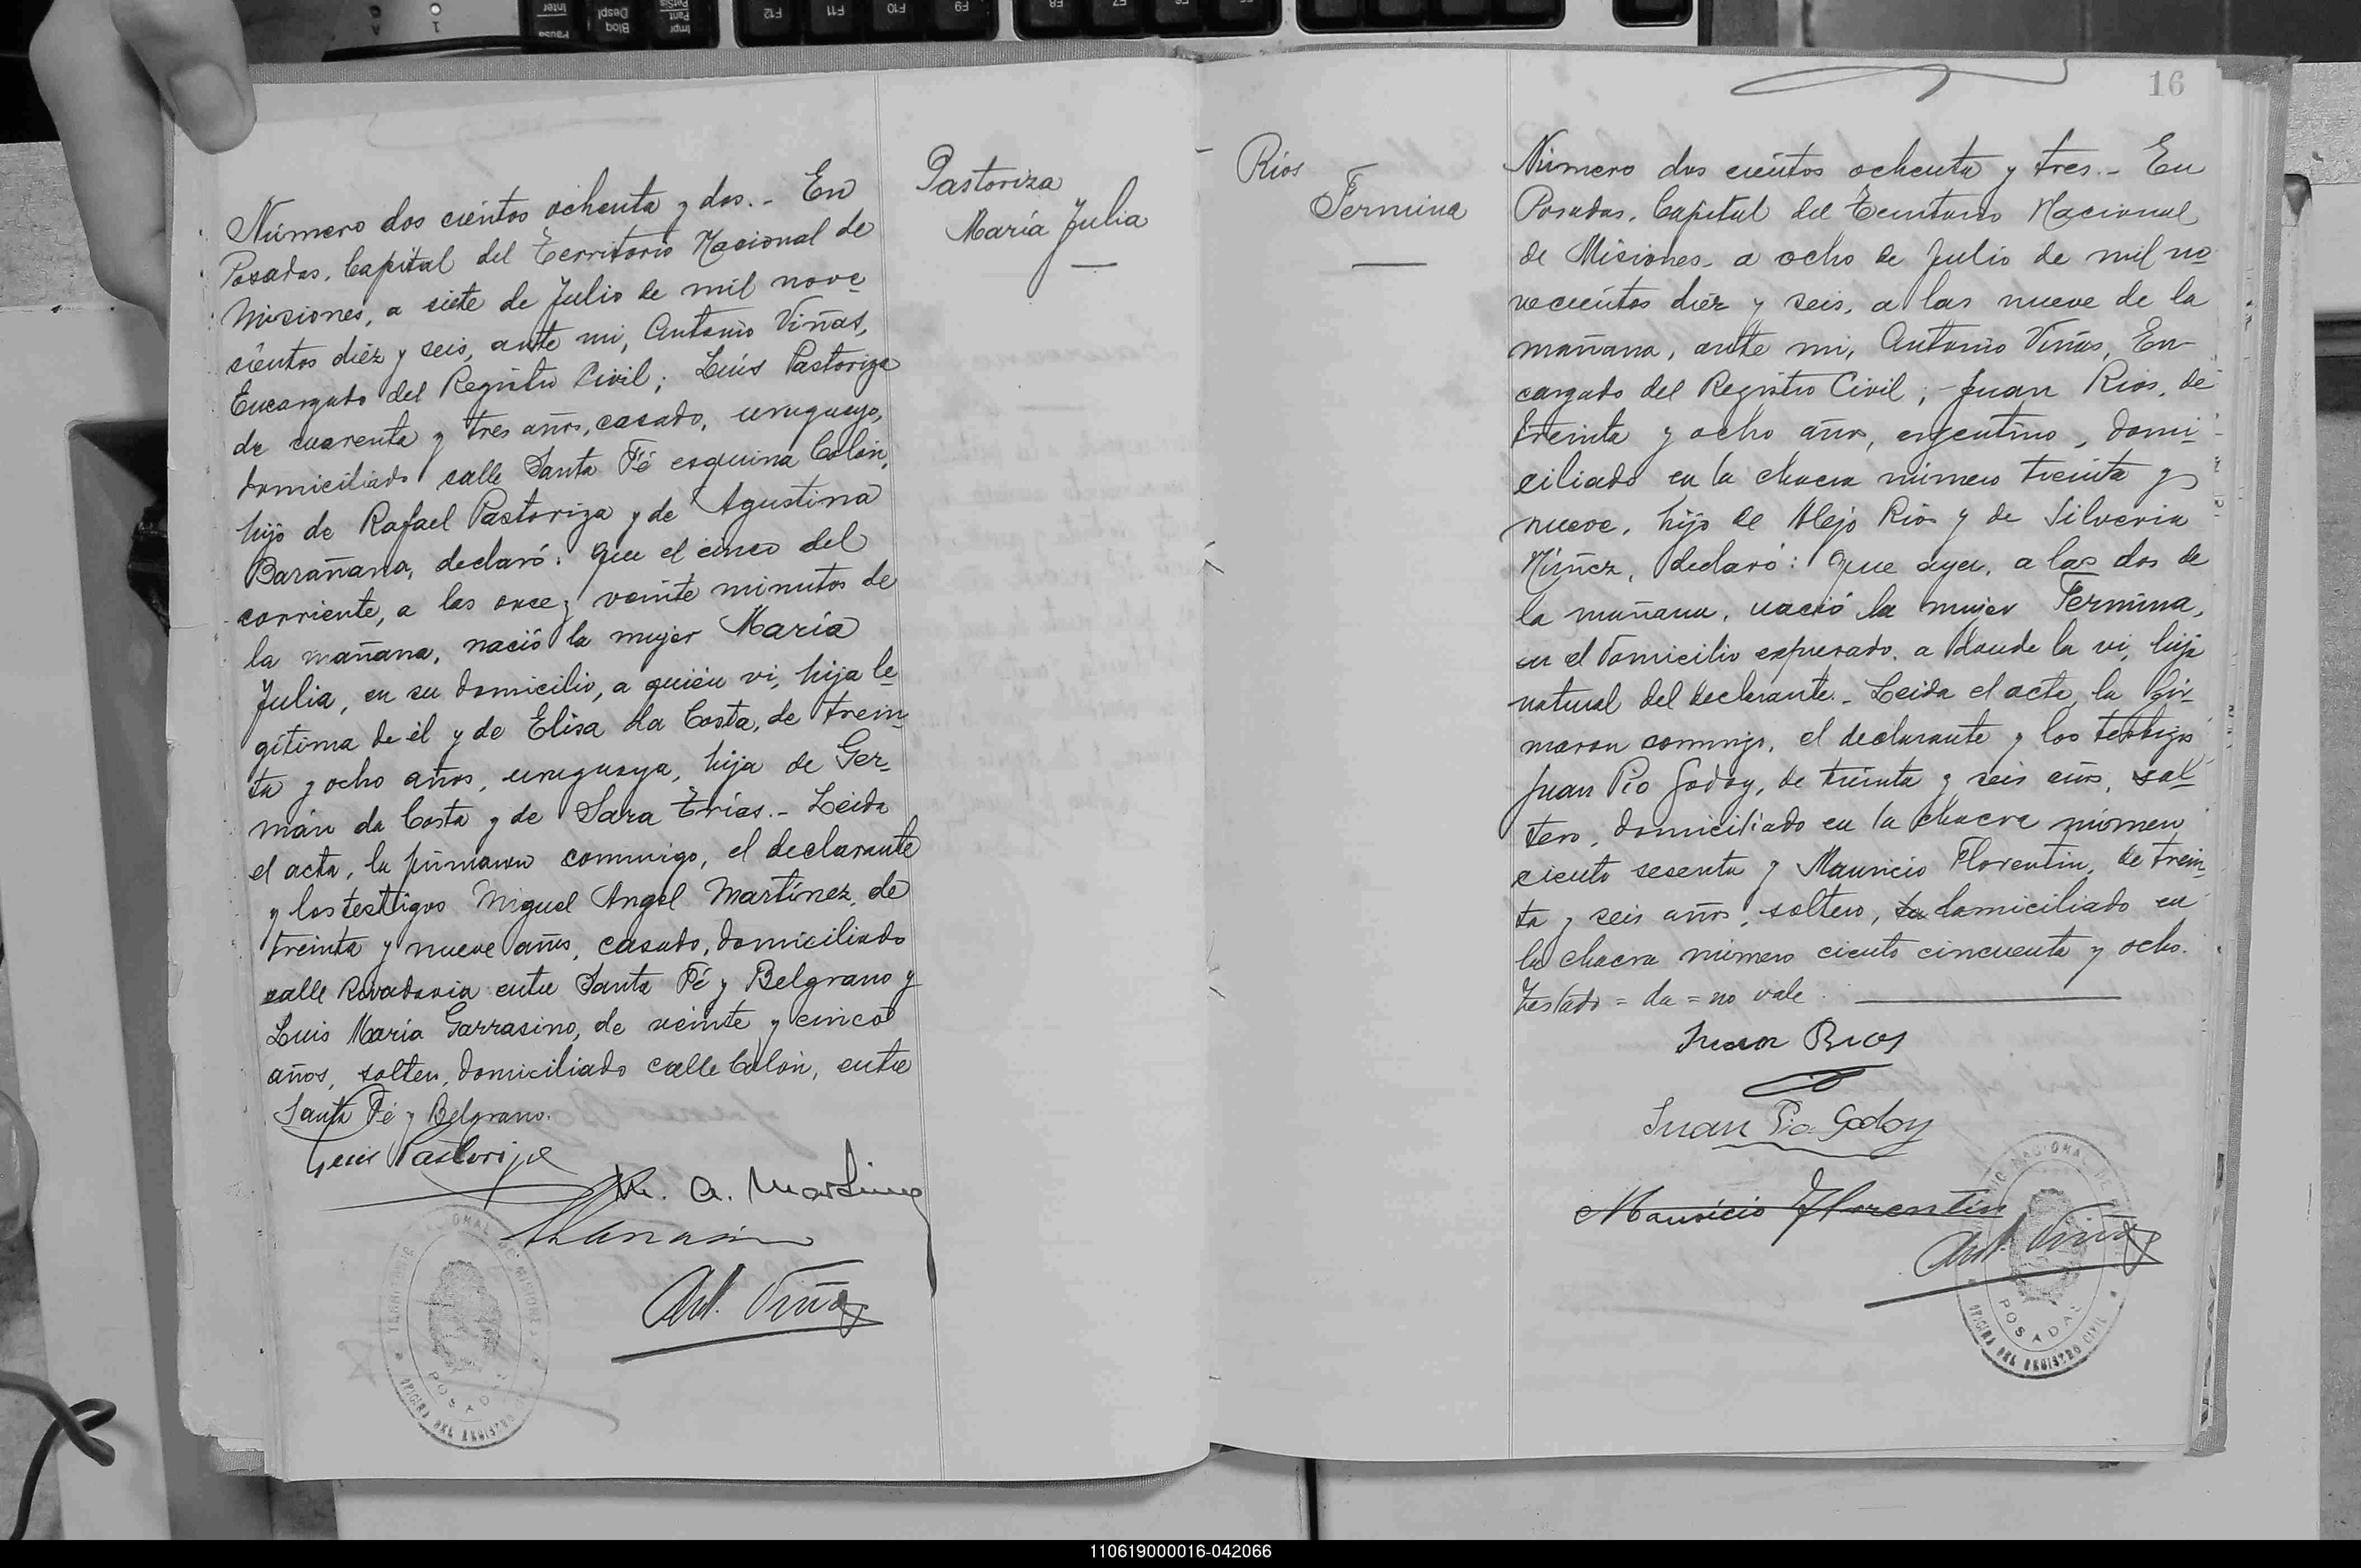 Número dos cientos ochenta y dos.- En
Posadas, Capital del Territorio Nacional de
Misiones, a siete de Julio de mil nove
cientos diéz y seis, ante mi, Antonio Viñas,
Encargado del Registro Civil; Luís Pastoriza
de cuarenta y tres años, casado, uruguayo,
domiciliado calle Santa Fé esquina Colón,
hijo de Rafael Pastoriza y de Agustina
Barañana, declaró: Que el cinco del
corriente, a las once y veinte minutos de
la mañana, nació la mujer María
Julia, en su domicilio, a quién vi, hija le-
gítima de él y de Elisa da Costa, de trein-
ta y ocho años, uruguaya, hija de Ger-
mán da Costa y de Sara Erías.- Leida
el acta, la firmaron conmigo, el declarante
y los testtigos Miguel Angel Martínez, de
treinta y nueve años, casado, domiciliado
calle Rivadavia entre Santa Fé y Belgrano y
Luis María Garrasino, de veinte y cinco
años, soltero, domiciliado calle Colón, entre
Santa Fé y Belgrano.
Luis Pastoriza
M. A. Martínez
Ant. Viñas
TERRITORIO NACIONAL DE MISIONES
POSADAS
OFICINA DEL REGISTRO CIVIL
Pastoriza
María Julia
16
Ríos
Fermina
Número dos cientos ochenta y tres.- En
Posadas, Capital del Territorio Nacional
de Misiones, a ocho de Julio de mil no
vecientos diéz y seis, a las nueve de la
mañana, ante mi, Antonio Viñas, En-
cargado del Registro Civil;- Juan Ríos, de
treinta y ocho años, argentino, domi-
ciliado en la chacra número treinta y
nueve, hijo de Alejo Ríos y de Silveria
Núñez, declaró: Que ayer, a las dos de
la mañana, nació la mujer Fermina,
en el domicilio expresado, a donde la vi, hija
natural del declarante.- Leida el acta, la fir-
maron conmigo, el declarante y los testigos
Juan Pío Godoy, de treinta y seis años, sol-
tero, domiciliado en la chacra número
ciento sesenta y Mauricio Florentín, de trein-
ta y seis años, soltero, da domiciliado en
la chacra número ciento cincuenta y ocho.
Testado = da = no vale.
Juan Rios
Juan Pio Godoy
Mauricio Florentin
Ant. Viñas
POSADAS
OFICINA DEL REGISTRO CIVIL
110619000016-042066